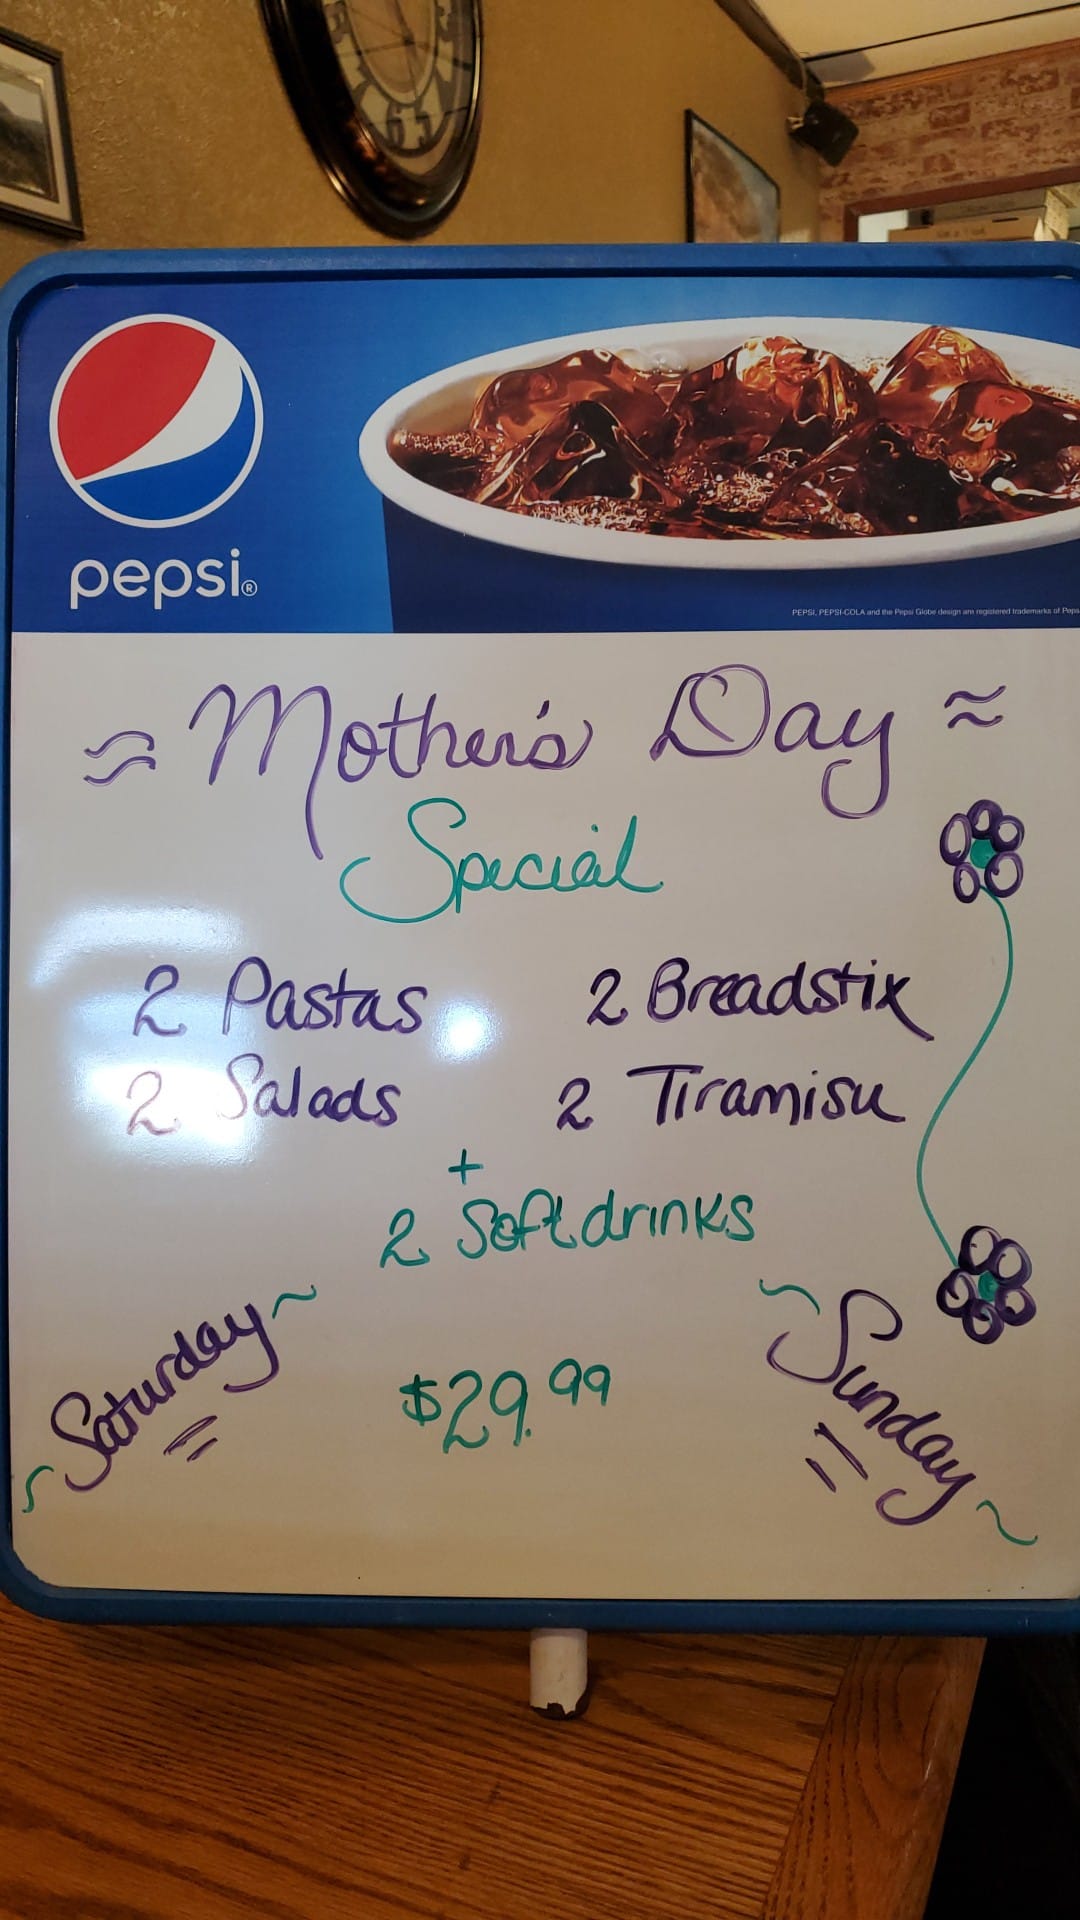 pepsi®
PEPSI, PEPSI-COLA and the Pepsi Globe design are registered trademarks of Peps
≈ Mother's Day ≈
Special
2 Pastas 2 Breadstix
2 Salads 2 Tiramisu
+
2 Soft drinks
~ Saturday ~
$29.99
~ Sunday ~